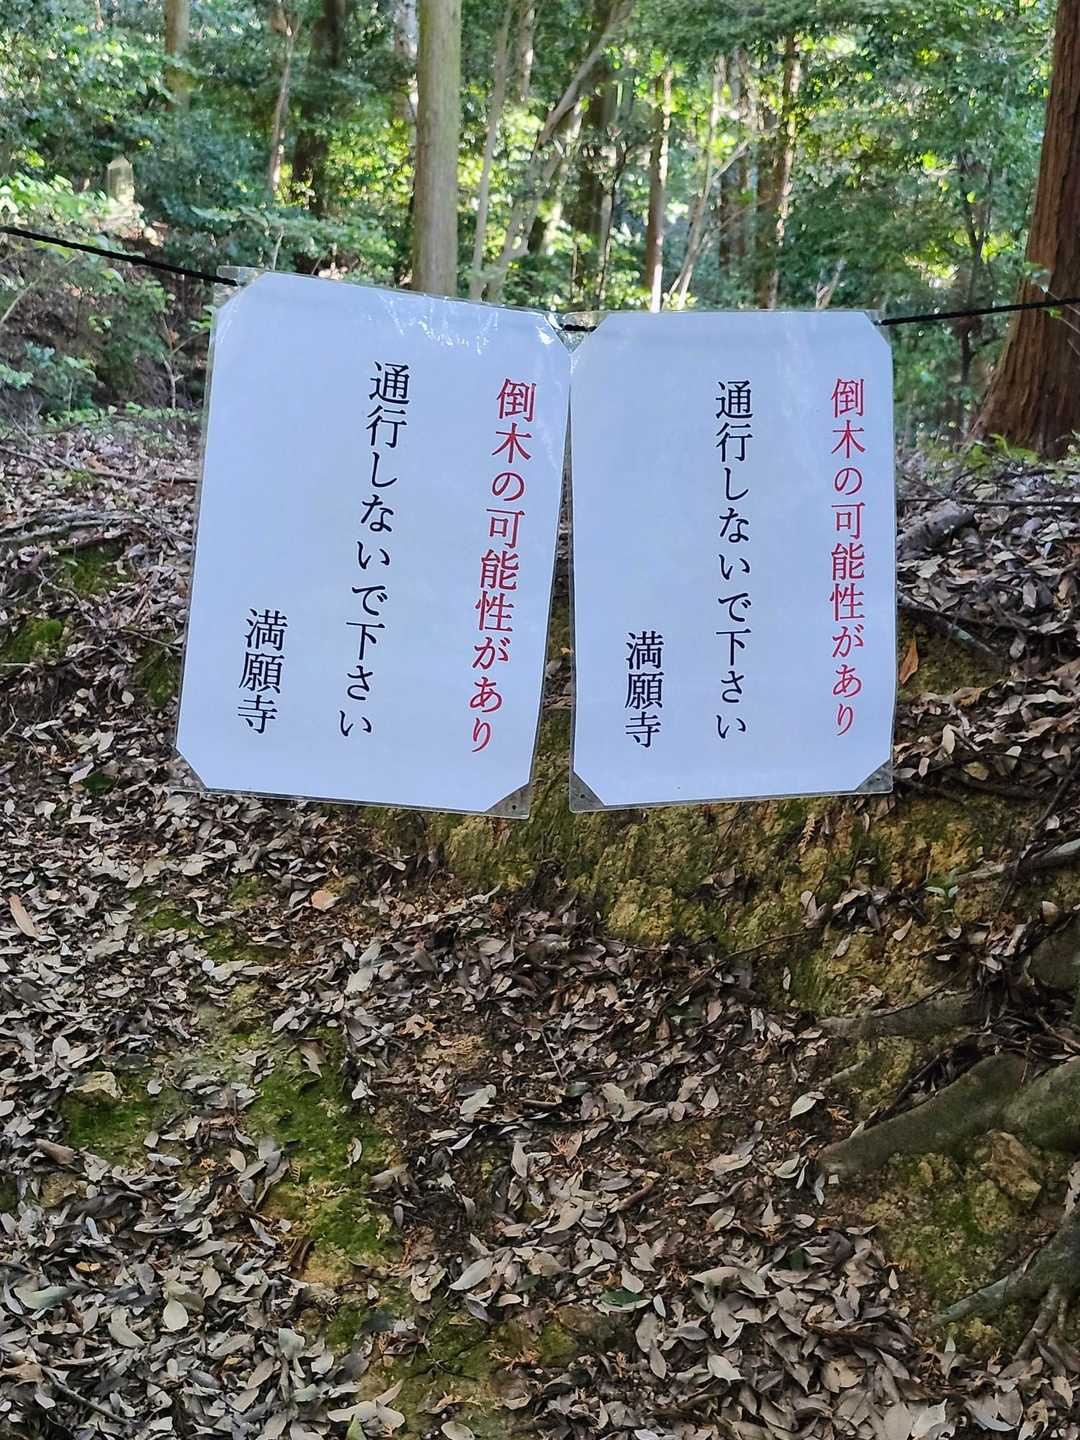 倒木の可能性があり
通行しないで下さい
満願寺
倒木の可能性があり
通行しないで下さい
満願寺